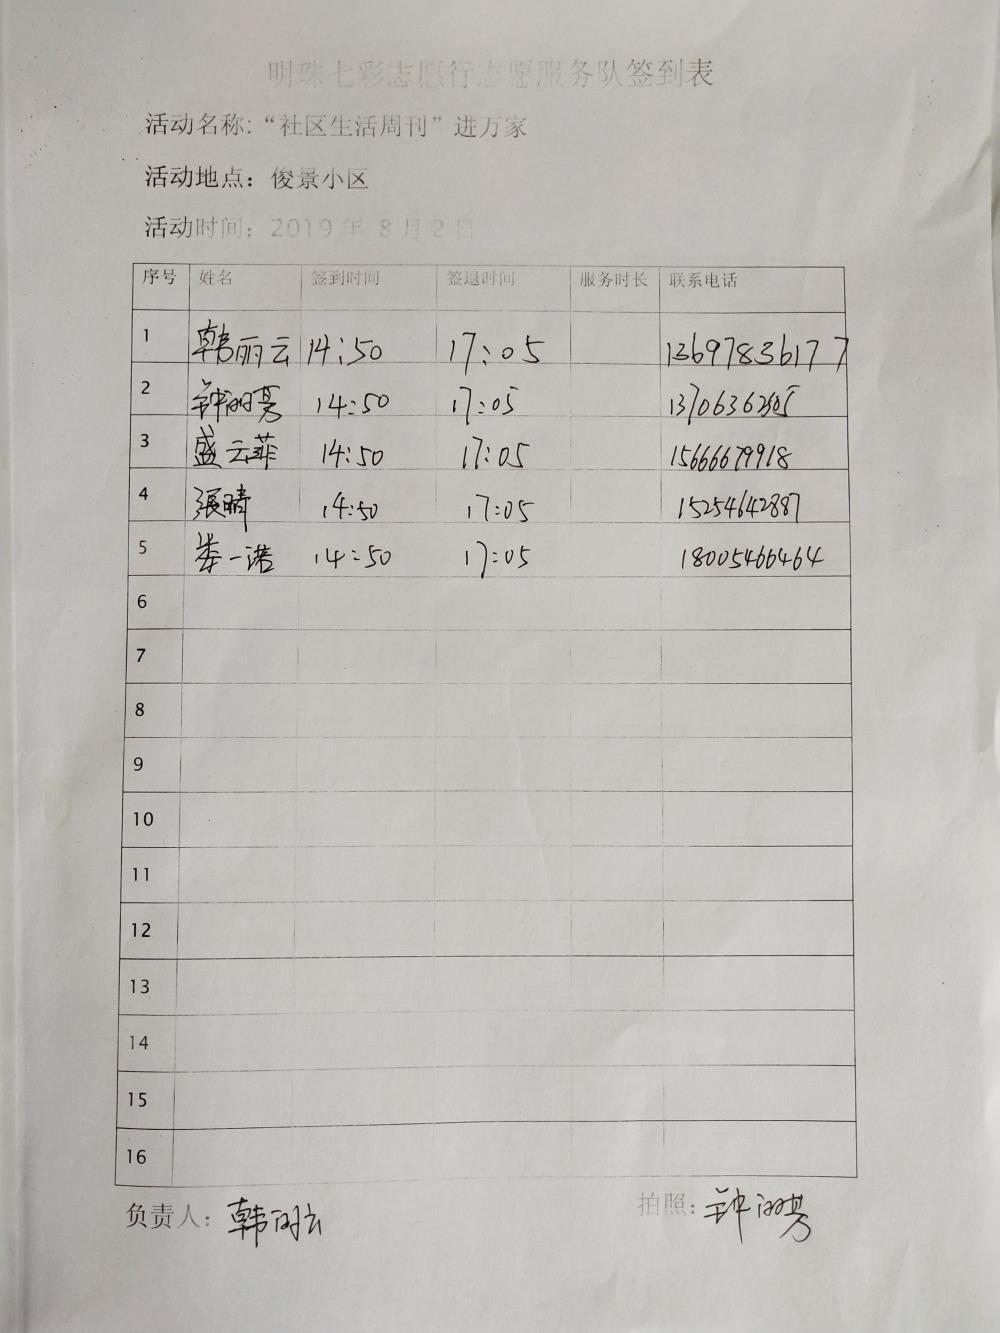 明珠七彩志愿行志愿服务队签到表
活动名称:“社区生活周刊”进万家
活动地点：俊景小区
活动时间：2019年 8月2日
序号 姓名 签到时间 签退时间 服务时长 联系电话
1 韩丽云 14:50 17:05 13697836177
2 14:50 17:05
3 盛云菲 14:50 17:05 15666679918
4 張晴 14:50 17:05 15254642887
5 一诺 14:50 17:05 18005466464
6
7
8
9
10
11
12
13
14
15
16
负责人：韩丽云 拍照：